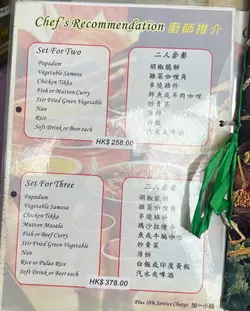 Chef's Recommendation 廚師推介
Set For Two
Papadum
Vegetable Samosa
Chicken Tikka
Fish or Mutton Curry
Stir Fried Green Vegetable
Nan
Rice
Soft Drink or Beer each
二人套餐
胡椒脆餅
雜菜咖喱角
串燒雞件
鮮魚或羊肉咖喱
炒青菜
薄餅
白飯
汽水或啤酒
HK$ 258.00
Set For Three
Papadum
Vegetable Samosa
Chicken Tikka
Mutton Masala
Fish or Beef Curry
Stir Fried Green Vegetable
Nan
Rice or Pulao Rice
Soft Drink or Beer each
三人套餐
胡椒脆餅
雜菜咖喱角
串燒雞件
馬沙拉羊
魚或牛腩咖喱
炒青菜
薄餅
白飯或印度黃飯
汽水或啤酒
HK$ 378.00
Plus 10% Service Charge 加一小賬